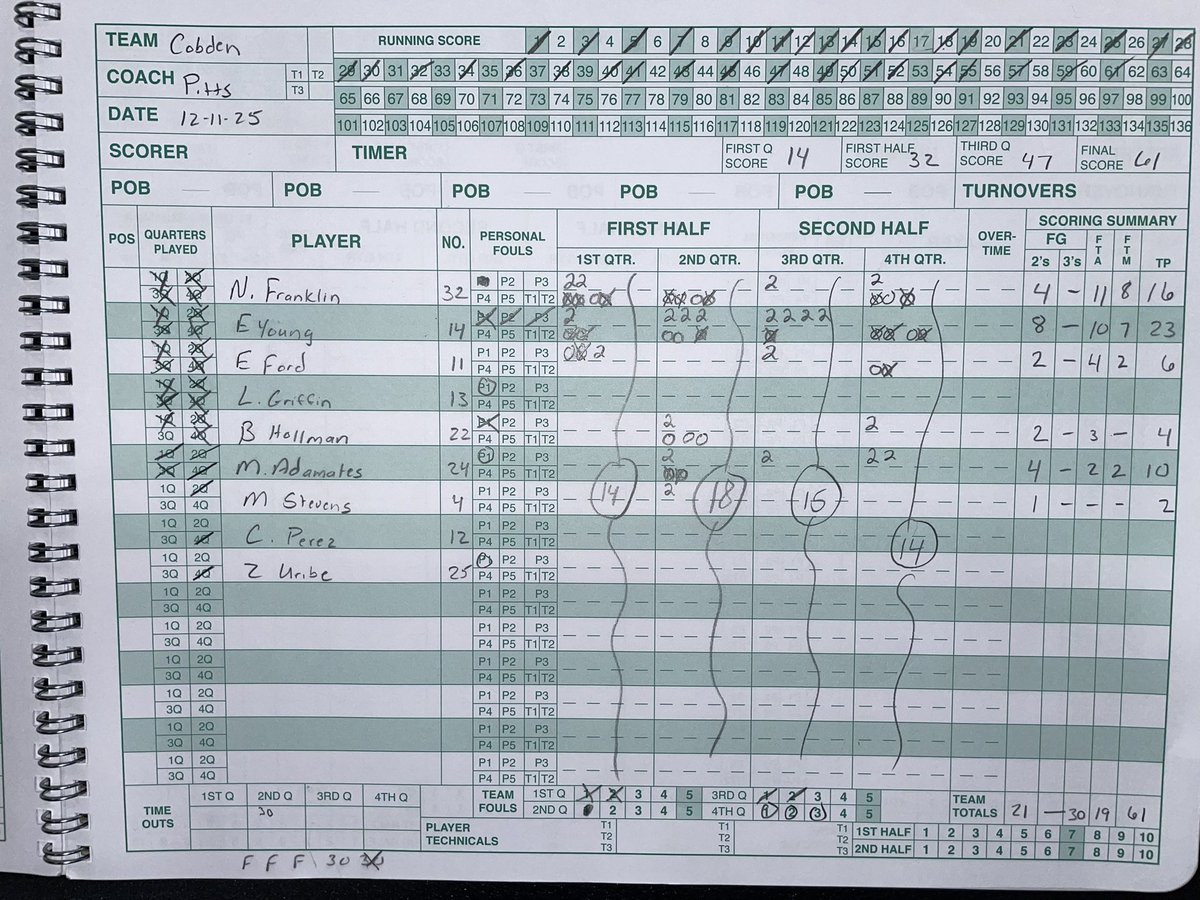 TEAM Cobden RUNNING SCORE 1 2 3 4 5 6 7 8 9 10 11 12 13 14 15 16 17 18 19 20 21 22 23 24 25 26 27 28
COACH Pitts T1 T2 T3 29 30 31 32 33 34 35 36 37 38 39 40 41 42 43 44 45 46 47 48 49 50 51 52 53 54 55 56 57 58 59 60 61 62 63 64
65 66 67 68 69 70 71 72 73 74 75 76 77 78 79 80 81 82 83 84 85 86 87 88 89 90 91 92 93 94 95 96 97 98 99 100
DATE 12-11-25 101 102 103 104 105 106 107 108 109 110 111 112 113 114 115 116 117 118 119 120 121 122 123 124 125 126 127 128 129 130 131 132 133 134 135 136
SCORER TIMER FIRST Q SCORE 14 FIRST HALF SCORE 32 THIRD Q SCORE 47 FINAL SCORE 61
POB — POB — POB — POB — POB — TURNOVERS
POS QUARTERS PLAYED PLAYER NO. PERSONAL FOULS FIRST HALF SECOND HALF OVER-TIME SCORING SUMMARY
1ST QTR. 2ND QTR. 3RD QTR. 4TH QTR. FG 2's 3's FTA FTM TP
1Q 2Q P2 P3 22 2 2
3Q 4Q N. Franklin 32 P4 P5 T1 T2 4 - 11 8 16
1Q 2Q P1 P2 P3 2 222 2222
3Q 4Q E Young 14 P4 P5 T1 T2 8 - 10 7 23
1Q 2Q P1 P2 P3 2 2
3Q 4Q E Ford 11 P4 P5 T1 T2 2 - 4 2 6
1Q 2Q P1 P2 P3
3Q 4Q L. Griffin 13 P4 P5 T1 T2
1Q 2Q P1 P2 P3 2 2
3Q 4Q B Hollman 22 P4 P5 T1 T2 0 00 2 - 3 - 4
1Q 2Q P1 P2 P3 2 2 22
3Q 4Q M. Adamates 24 P4 P5 T1 T2 4 - 2 2 10
1Q 2Q P1 P2 P3 14 2 18 15
3Q 4Q M Stevens 4 P4 P5 T1 T2 1 - - - 2
1Q 2Q P1 P2 P3
3Q 4Q C. Perez 12 P4 P5 T1 T2 14
1Q 2Q P1 P2 P3
3Q 4Q Z Uribe 25 P4 P5 T1 T2
1Q 2Q P1 P2 P3
3Q 4Q P4 P5 T1 T2
1Q 2Q P1 P2 P3
3Q 4Q P4 P5 T1 T2
1Q 2Q P1 P2 P3
3Q 4Q P4 P5 T1 T2
1Q 2Q P1 P2 P3
3Q 4Q P4 P5 T1 T2
1Q 2Q P1 P2 P3
3Q 4Q P4 P5 T1 T2
1Q 2Q P1 P2 P3
3Q 4Q P4 P5 T1 T2
TIME OUTS 1ST Q 2ND Q 3RD Q 4TH Q TEAM FOULS 1ST Q 1 2 3 4 5 3RD Q 1 2 3 4 5 TEAM TOTALS 21 — 30 19 61
30 2ND Q 2 3 4 5 4TH Q 1 2 3 4 5
PLAYER TECHNICALS T1 T2 T3 T1 T2 T3 T1 T2 T3 1ST HALF 1 2 3 4 5 6 7 8 9 10
2ND HALF 1 2 3 4 5 6 7 8 9 10
F F F 30 30